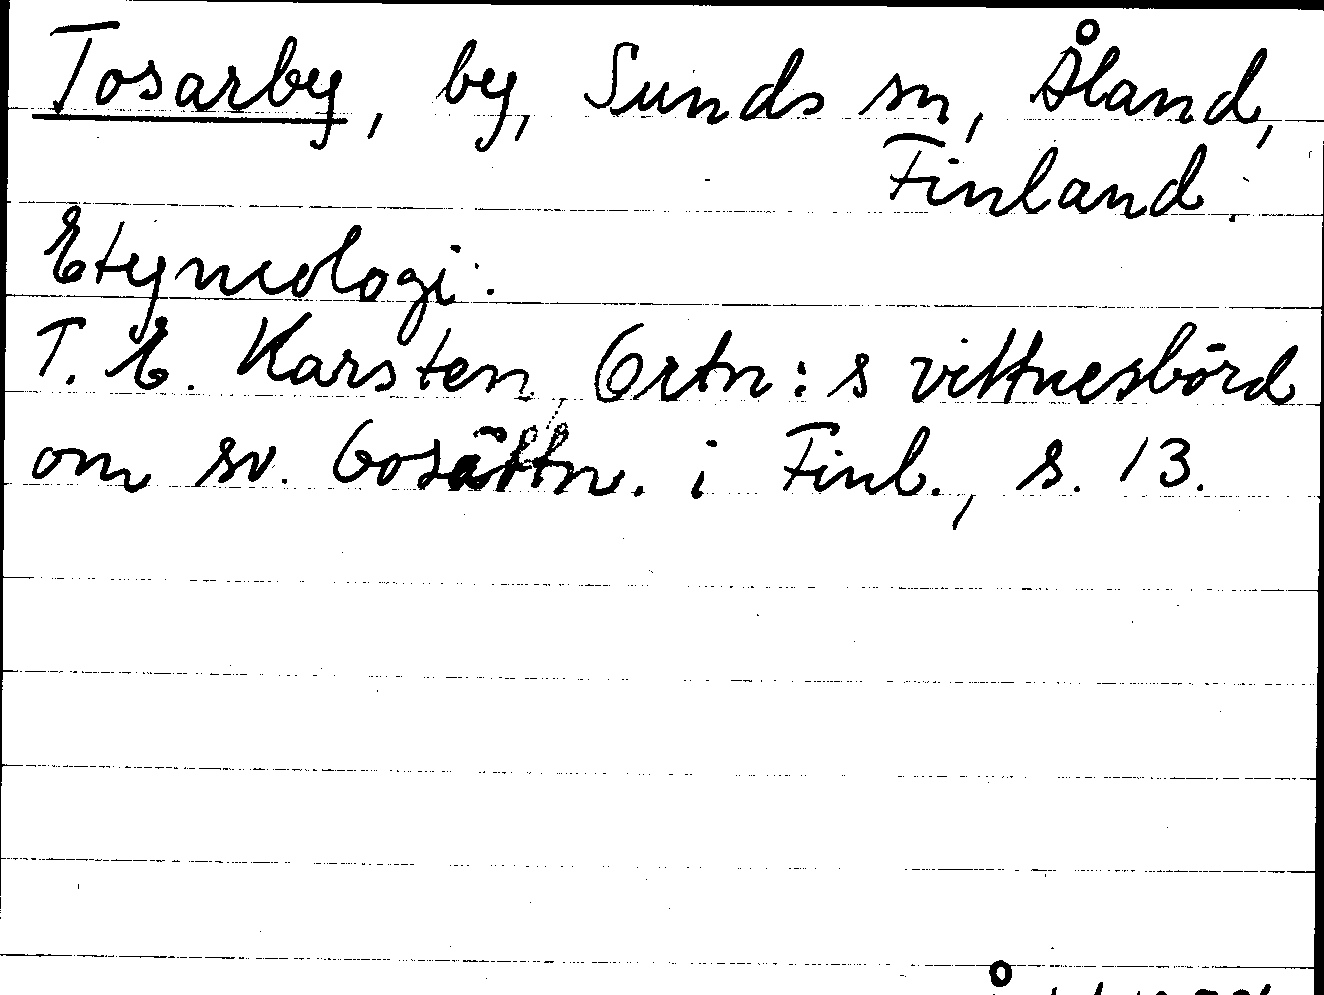 Tosarby, by, Sunds sn, Åland,
Finland.
Etymologi:
T. E. Karsten, Ortn:s vittnesbörd
om sv. bosättn. i Finl., s. 13.